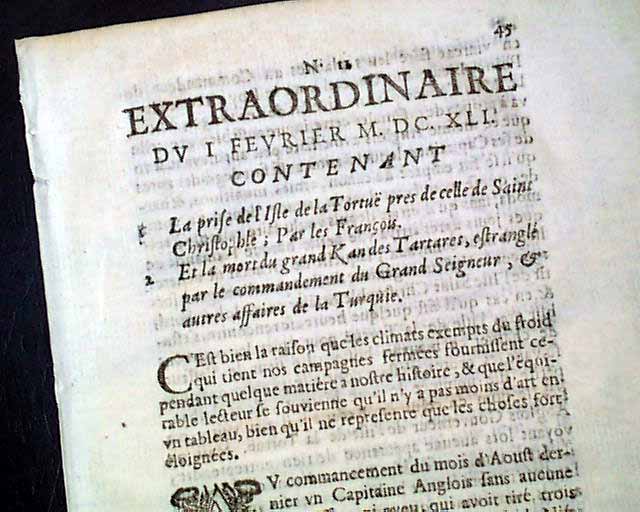 45
N. 12
EXTRAORDINAIRE
DV I FEVRIER M. DC. XLI.
CONTENANT
1 La prise de l'Isle de la Tortuë pres de celle de Saint
Christophle; Par les François.
2 Et la mort du grand Kan des Tartares, estranglé
par le commandement du Grand Seigneur, &
autres affaires de la Turquie.
C'Est bien la raison que les climats exempts du froid
qui tient nos campagnes fermées fournissent ce-
pendant quelque matière a nostre histoire, & que l'équi-
table lecteur se souvienne qu'il n'y a pas moins d'art en
vn tableau, bien qu'il ne represente que les choses fort
éloignées.
AV commancement du mois d'Aoust der-
nier vn Capitaine Anglois sans aucune
qui avoit tiré trois